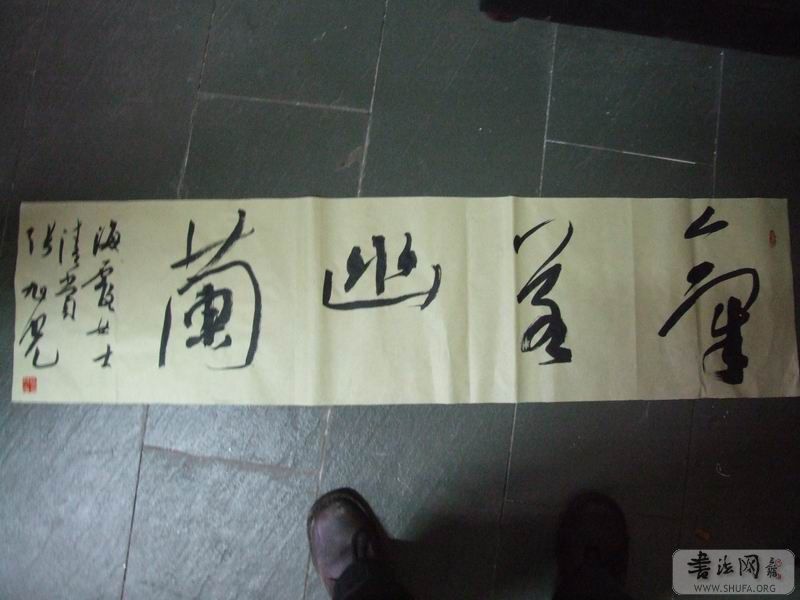 氣若幽蘭
海霞女士
清賞
张旭光
书法网
WWW.SHUFA.ORG